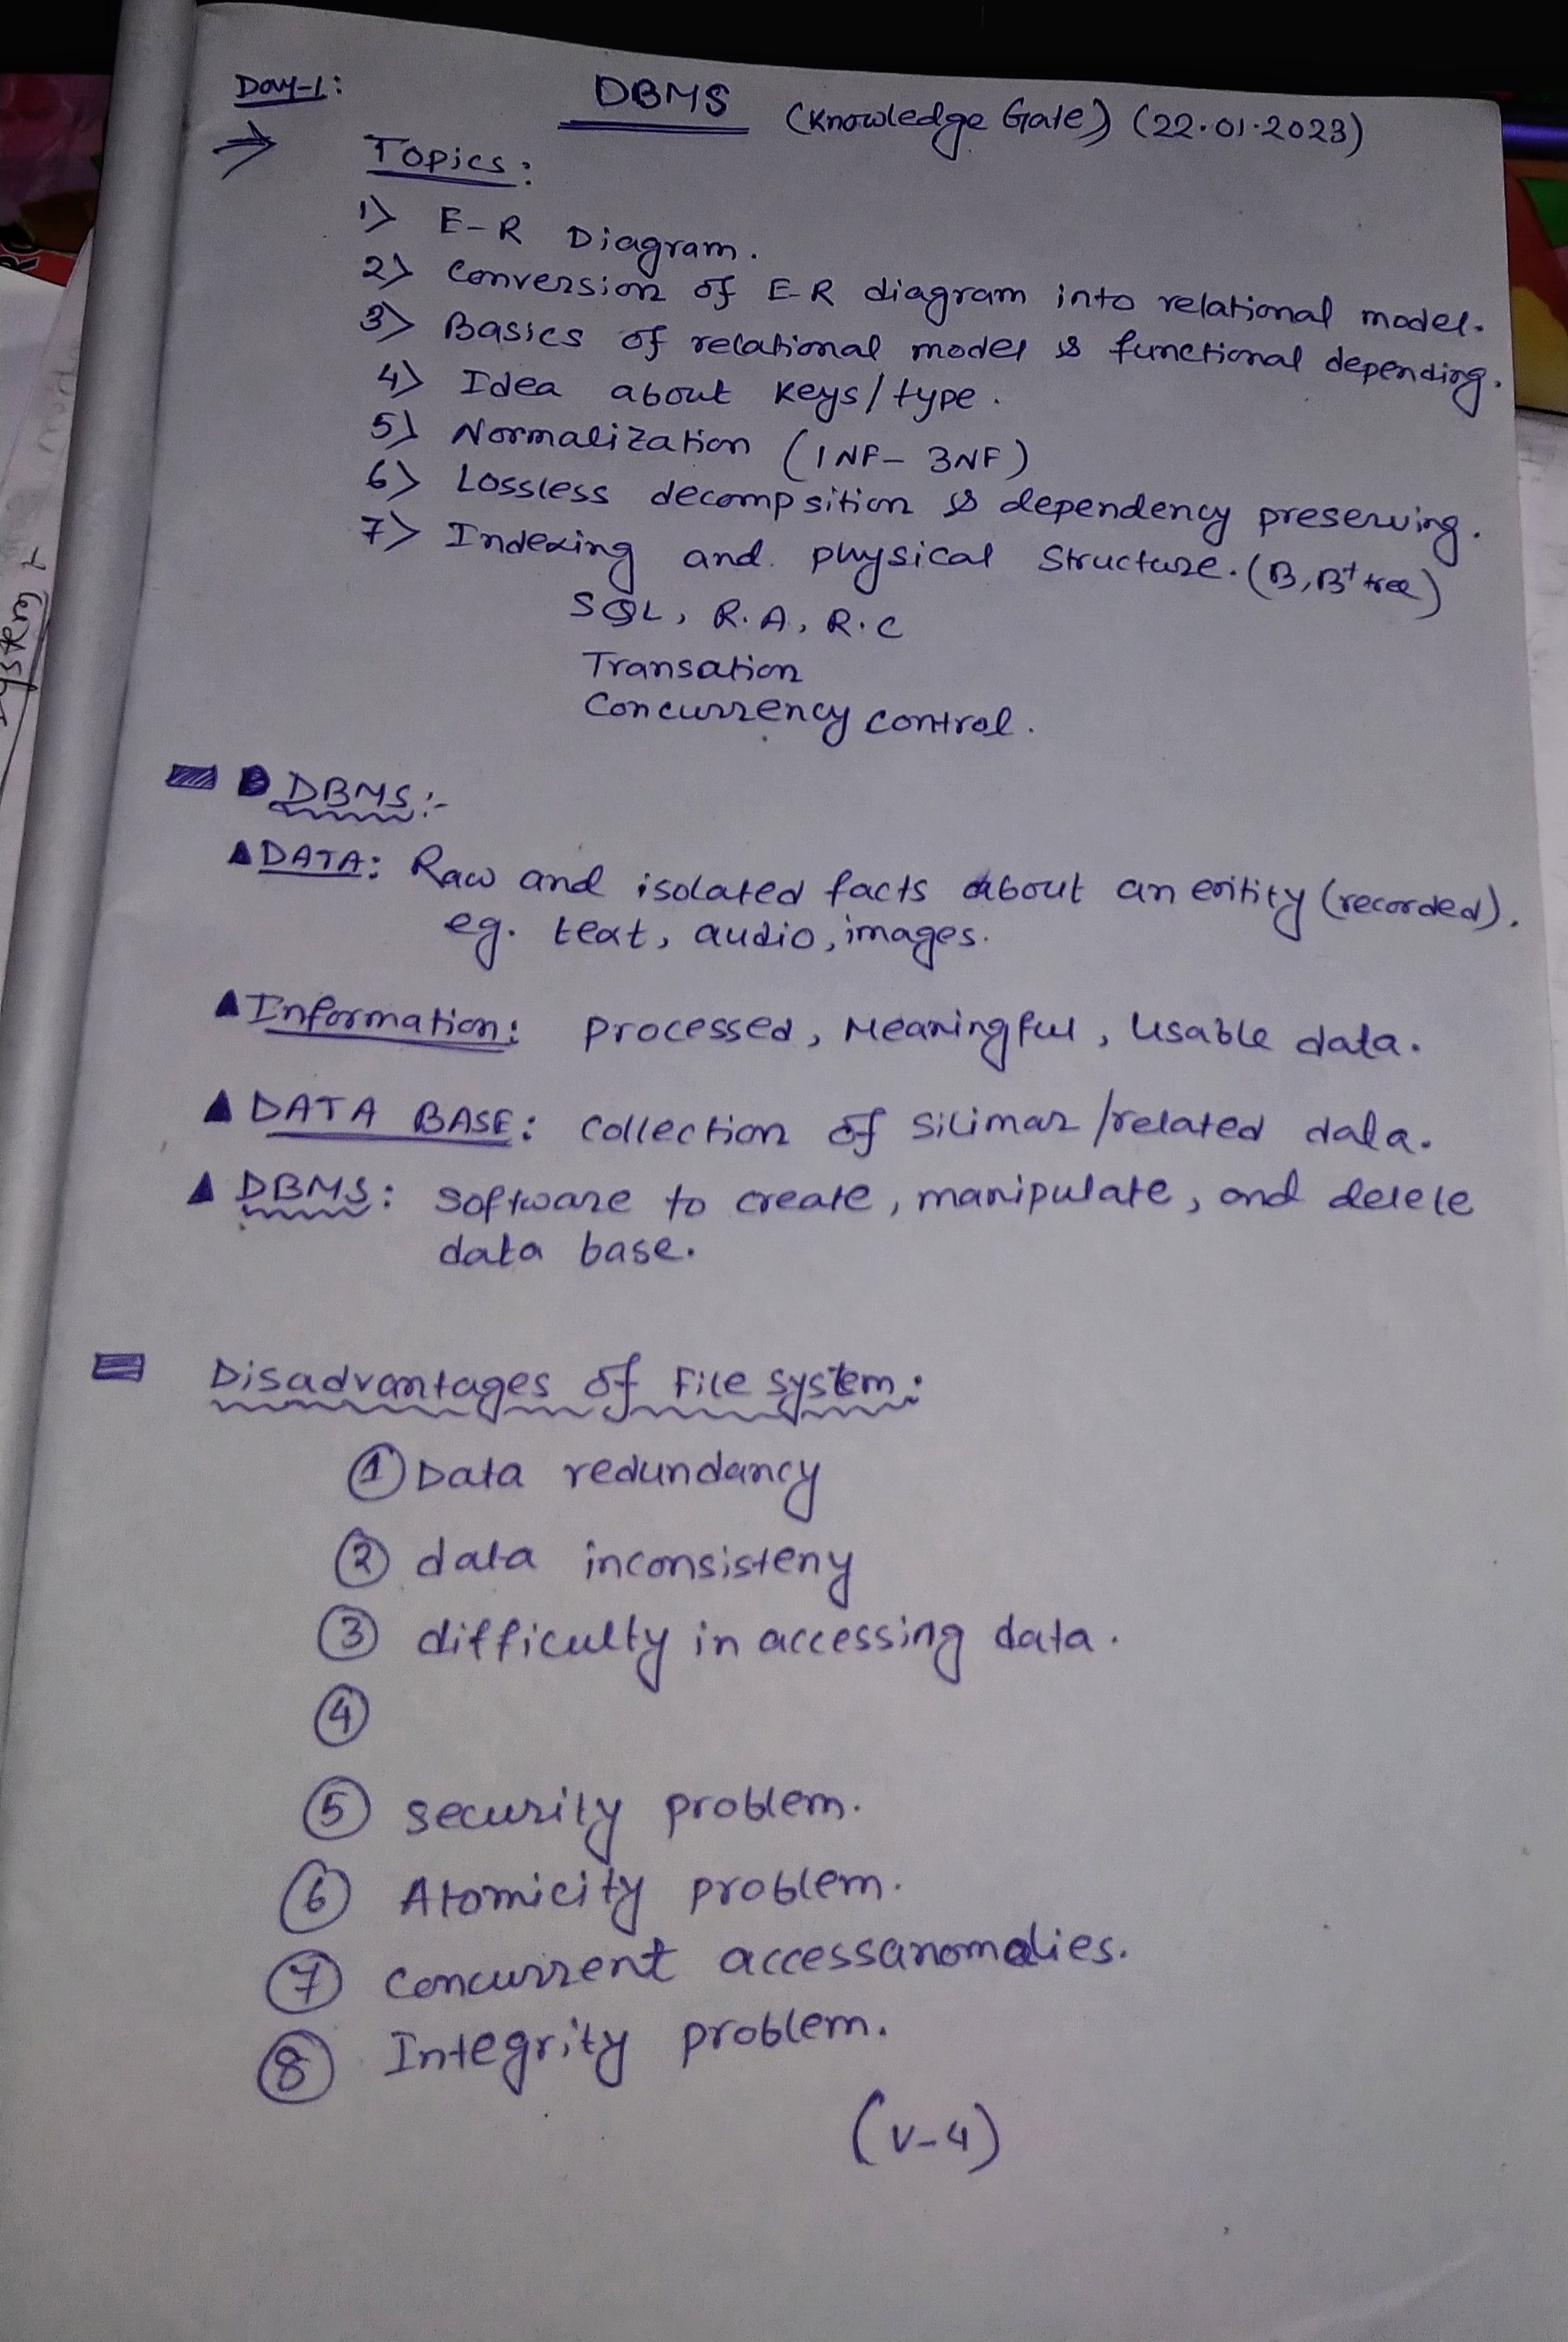 Day-1:
DBMS (Knowledge Gate) (22.01.2023)
Topics:
1) E-R Diagram.
2) Conversion of E-R diagram into relational model.
3) Basics of relational model & functional depending.
4) Idea about keys/type.
5) Normalization (1NF- 3NF)
6) Lossless decompsition & dependency preserving.
7) Indexing and physical Structure. (B, B+ tree)
SQL, R.A, R.C
Transation
Concurrency control.
DBMS:-
DATA: Raw and isolated facts about an entity (recorded).
eg. text, audio, images.
Information: processed, Meaningful, Usable data.
DATA BASE: collection of Silimar/related data.
DBMS: software to create, manipulate, and delete
data base.
Disadvantages of File system:
① Data redundancy
② data inconsisteny
③ difficulty in accessing data.
④
⑤ security problem.
⑥ Atomicity problem.
⑦ Concurrent accessanomalies.
⑧ Integrity problem.
(V-4)